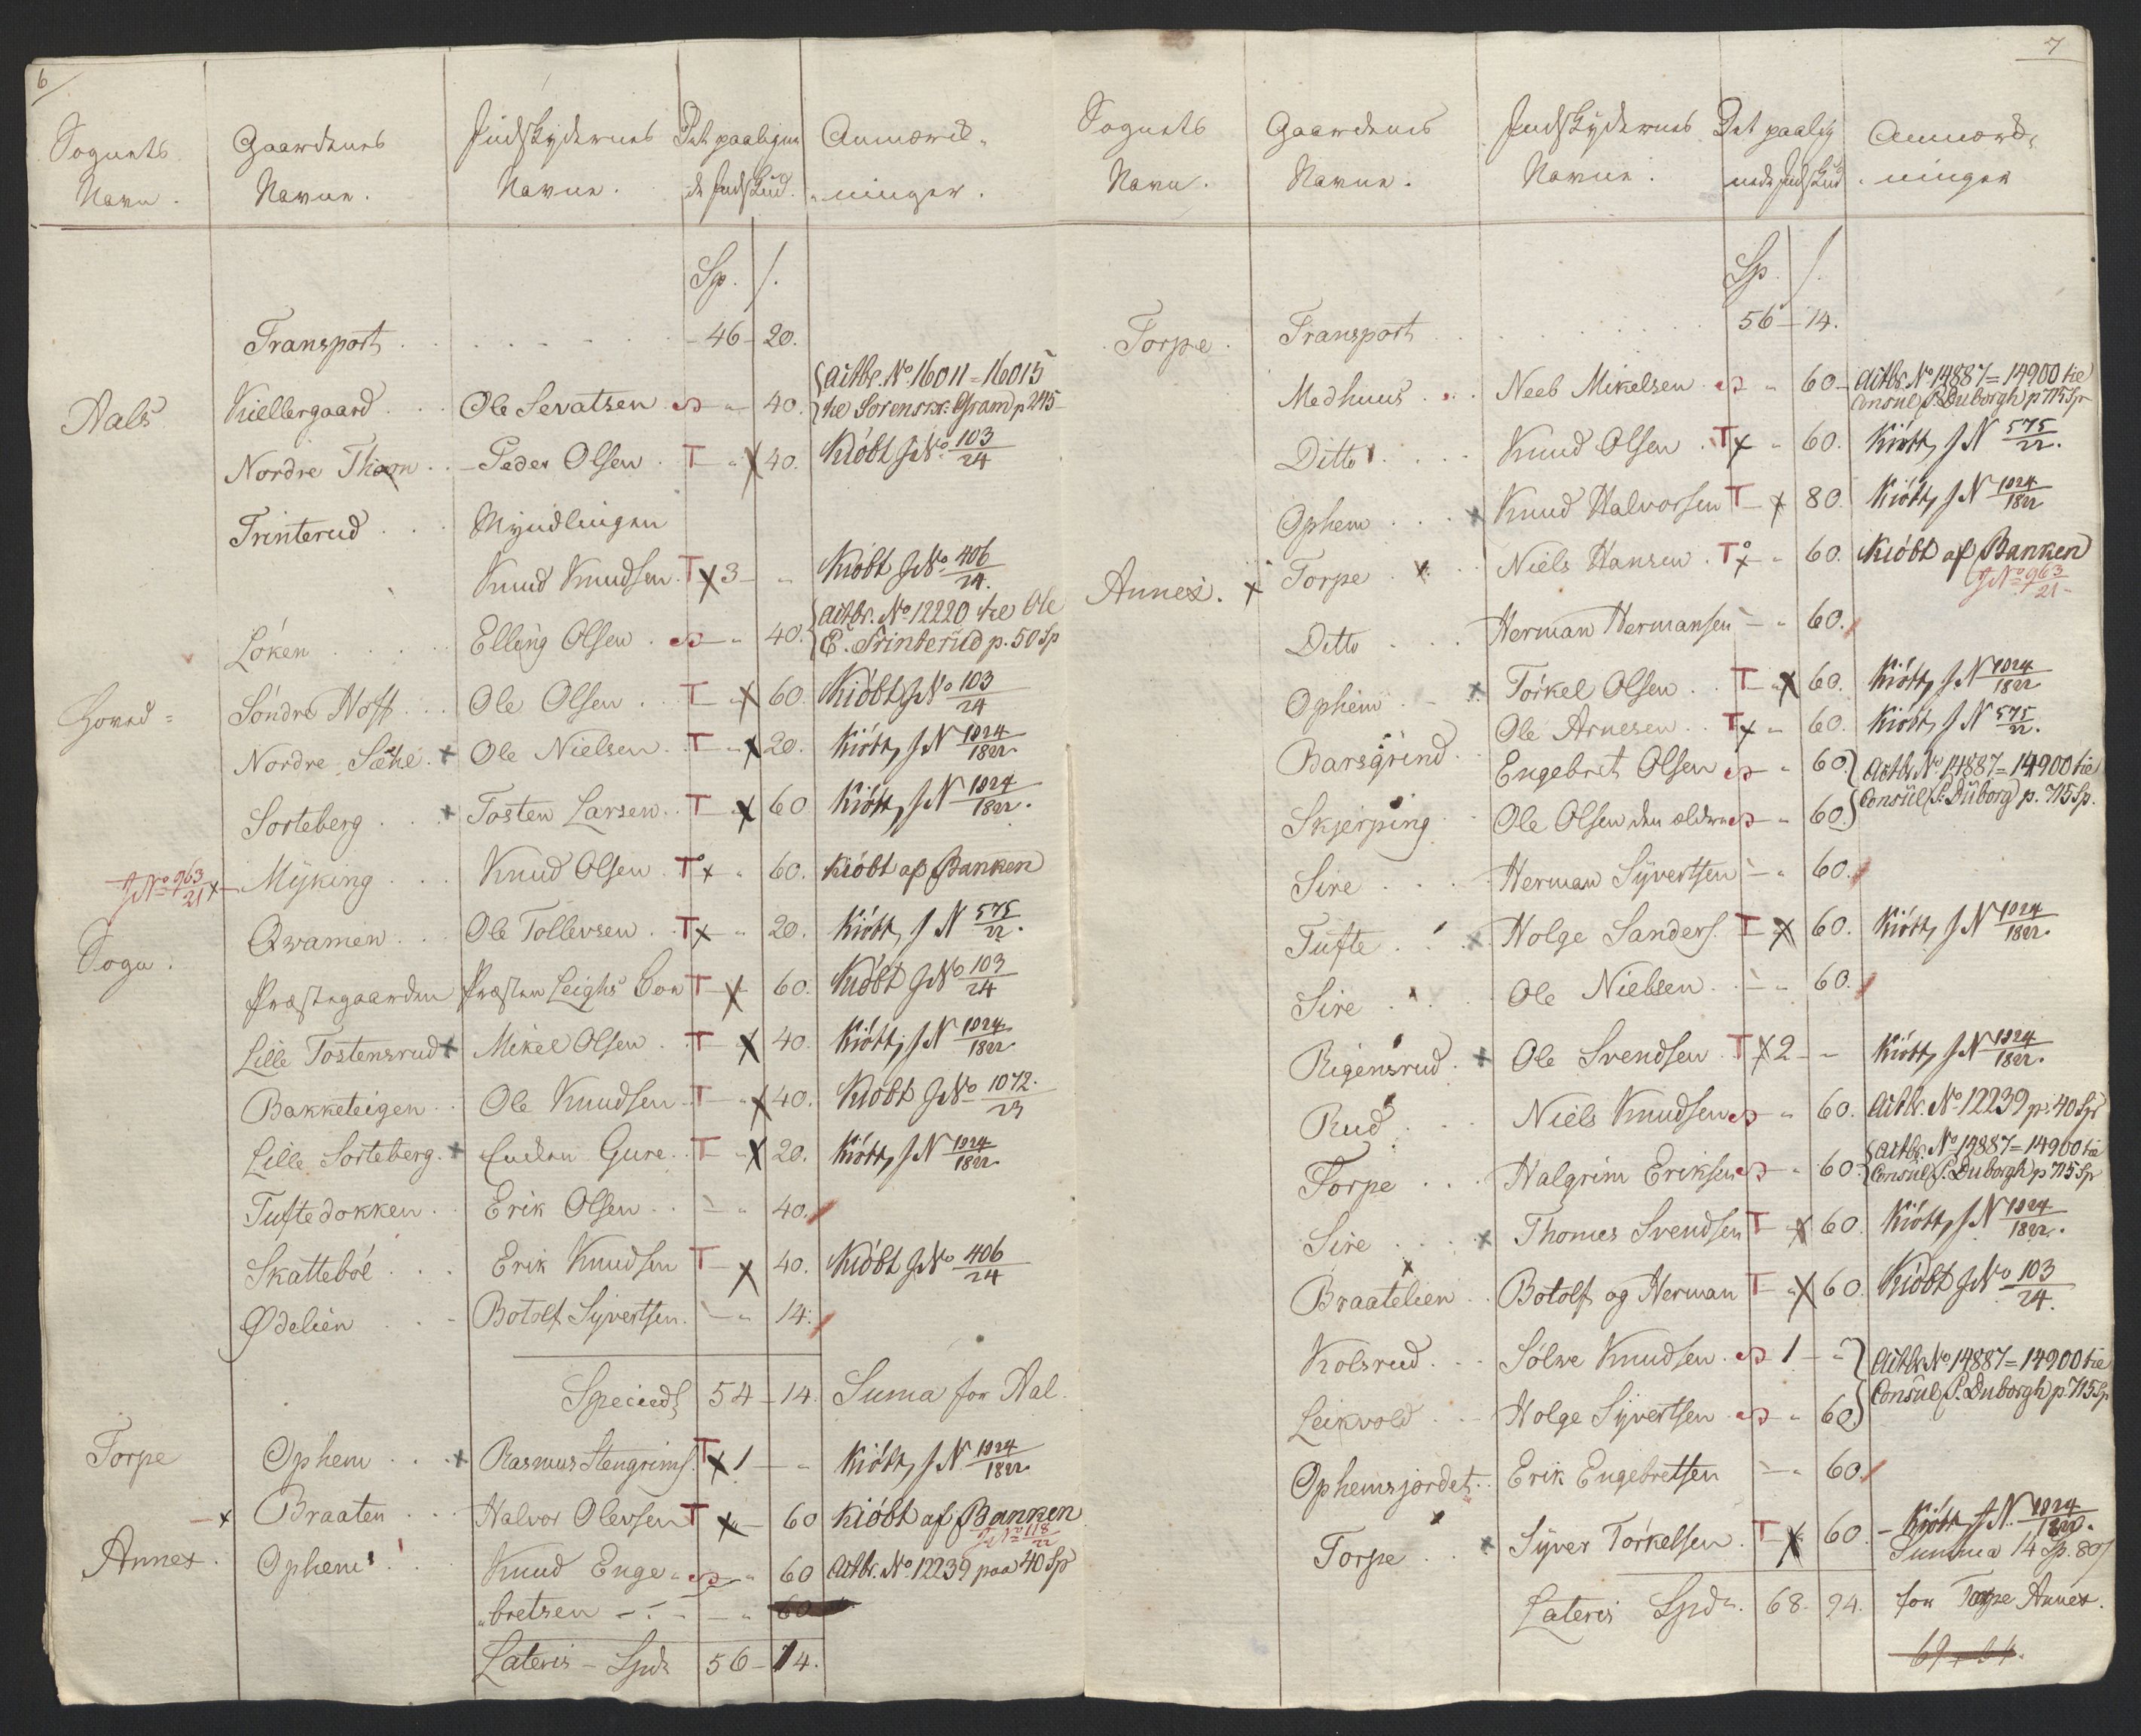 6
Sognets Navn. Gaardenes Navne. Indskydernes Navne. Det paaligne de Indskud. Anmærk-
ninger.
Sp. s.
Transport . . . . . . 46 - 20.
Aals Kiellergaard . . . Ole Sevatsen . S - " 40. { Actbr. No 16011 = 16015
til Sorenskr. Gram p 245 -
Nordre Thoon . . - Peder Olsen . T - " X 40. Kiöbt J No 103/24
Trinterud . . . Myndlingen
Knud Knudsen . T X 3 - " Kiöbt J No 406/24.
Löken . . . . Elling Olsen . S - " 40. { Actbr. No 12220 til Ole
E. Trinterud p. 50 Sp
Hoved = Söndre Hoff . . . Ole Olsen . . T - X 60. Kiöbt J No 103/24
Nordre Sæhe . + Ole Nielsen . T - " X 20. Kiöbt, J N 1024/1822.
Sorteberg . . . + Tosten Larsen . . T - X 60 Kiöbt, J N 1024/1822.
J No 963/21 x - Myking . . . Knud Olsen . T° x " 60. Kiöbt af Banken
Sogn. Qvamen . . . Ole Tollevsen . T x - " 20. Kiöbt, J N 575/22.
Præstegaarden Præsten Leighs Bon T - X 60. Kiöbt J No 103/24
Lille Tostensrud + Mikel Olsen . T - X 40. Kiöbt, J N 1024/1822.
Bakketeigen . . Ole Knudsen . T - " X 40. Kiöbt J No 1072./23
Lille Sorteberg . + Enken Gure . . T - " X 20. Kiöbt, J N 1024/1822.
Tuftedokken . . Erik Olsen . . - " 40. /
Skatteböe . . . Erik Knudsen T - X 40. Kiöbt J No 406/24
Ødelien . . - Botolf Syvertsen . - " 14. /
Speciedl 54 - 14. Suma for Aal.
Torpe Ophem . . . + Rasmus Stengrims. T X 1 - " Kiöbt, J N 1024/1822.
- x Braaten . . . Halvor Olevsen T X " - 60 Kiöbt af Banken
J No 118/22
Annex. Ophem . . Knud Enge- S - " 60 Actbr. No 12239 paa 40 Sp
"bretsen - . - - " 60
Lateris - Spd 56 - 14.
7
Sognets Navn. Gaardenes Navne. Indskydernes Navne. Det paalig
nede Indskud. Anmærk-
ninger
Sp. s.
Torpe. Transport . . . . . . . 56 - 14.
Medhuus . . . Neeb Mikelsen . S " 60 - Actbr. No 14887 = 14900 til
Consul P. Duborgh p 715 Sp
Ditto . . . . Knud Olsen . T x " 60. Kiöbt, J N 575/22.
Ophem . . . + Knud Halvorsen T - X 80. Kiöbt, J N 1024/1822
Annex. x Torpe . x . . Niels Hansen . T° x " 60. Kiöbt af Banken
J No 963/21 -
Ditto . . . Herman Hermansen - " 60. /
Ophem . - + Torkel Olsen . . T - X 60. Kiöbt, J N 1024/1822
Barsgrind . . Ole Arnesen . . T x - " 60. Kiöbt, J N 575/22.
Engebret Olsen S - " 60. } Actbr. No 14887 = 14900 til
Skjerping . . Ole Olsen den ældre S - " 60. } Consul P. Duborg p. 715 Sp.
Sire . . . . Herman Syvertsen - " 60. /
Tufte . . . + Holge Sanders. T - X 60. Kiöbt, J N 1024/1822.
Sire . . . . Ole Nielsen . . - " 60. /
Rigensrud . + Ole Svendsen . T X 2 - - Kiöbt, J N 1024/1822.
Rud . . . Niels Knudsen S - " 60. Actbr. No 12239 p. 40 Sp
Torpe . . . Halgrim Eriksen S - " 60. { Actbr. No 14887 = 14900 til
Consul P. Duborgh p 715 Sp
Sire . . . . + Thomes Svendsen T - X 60. Kiöbt, J N 1024/1822.
Braatelien . . Botolf og Herman T - " X 60. Kiöbt J No 103/24.
Kolsrud . . . Sölve Knudsen . S 1 - " } Actbr. No 14887 = 14900 til
Leikvold . - Holge Syvertsen . S - " 60 } Consul P. Duborgh p. 715 Sp
Ophemsjordet . . Erik Engebretsen - " 60. /
Torpe . . + Syver Torkelsen . T - X 60. - Kiöbt J N. 1024/1822.
Summa 14 Sp. 80 s
Lateris Spd. 68. 94. for Torpe Annex.